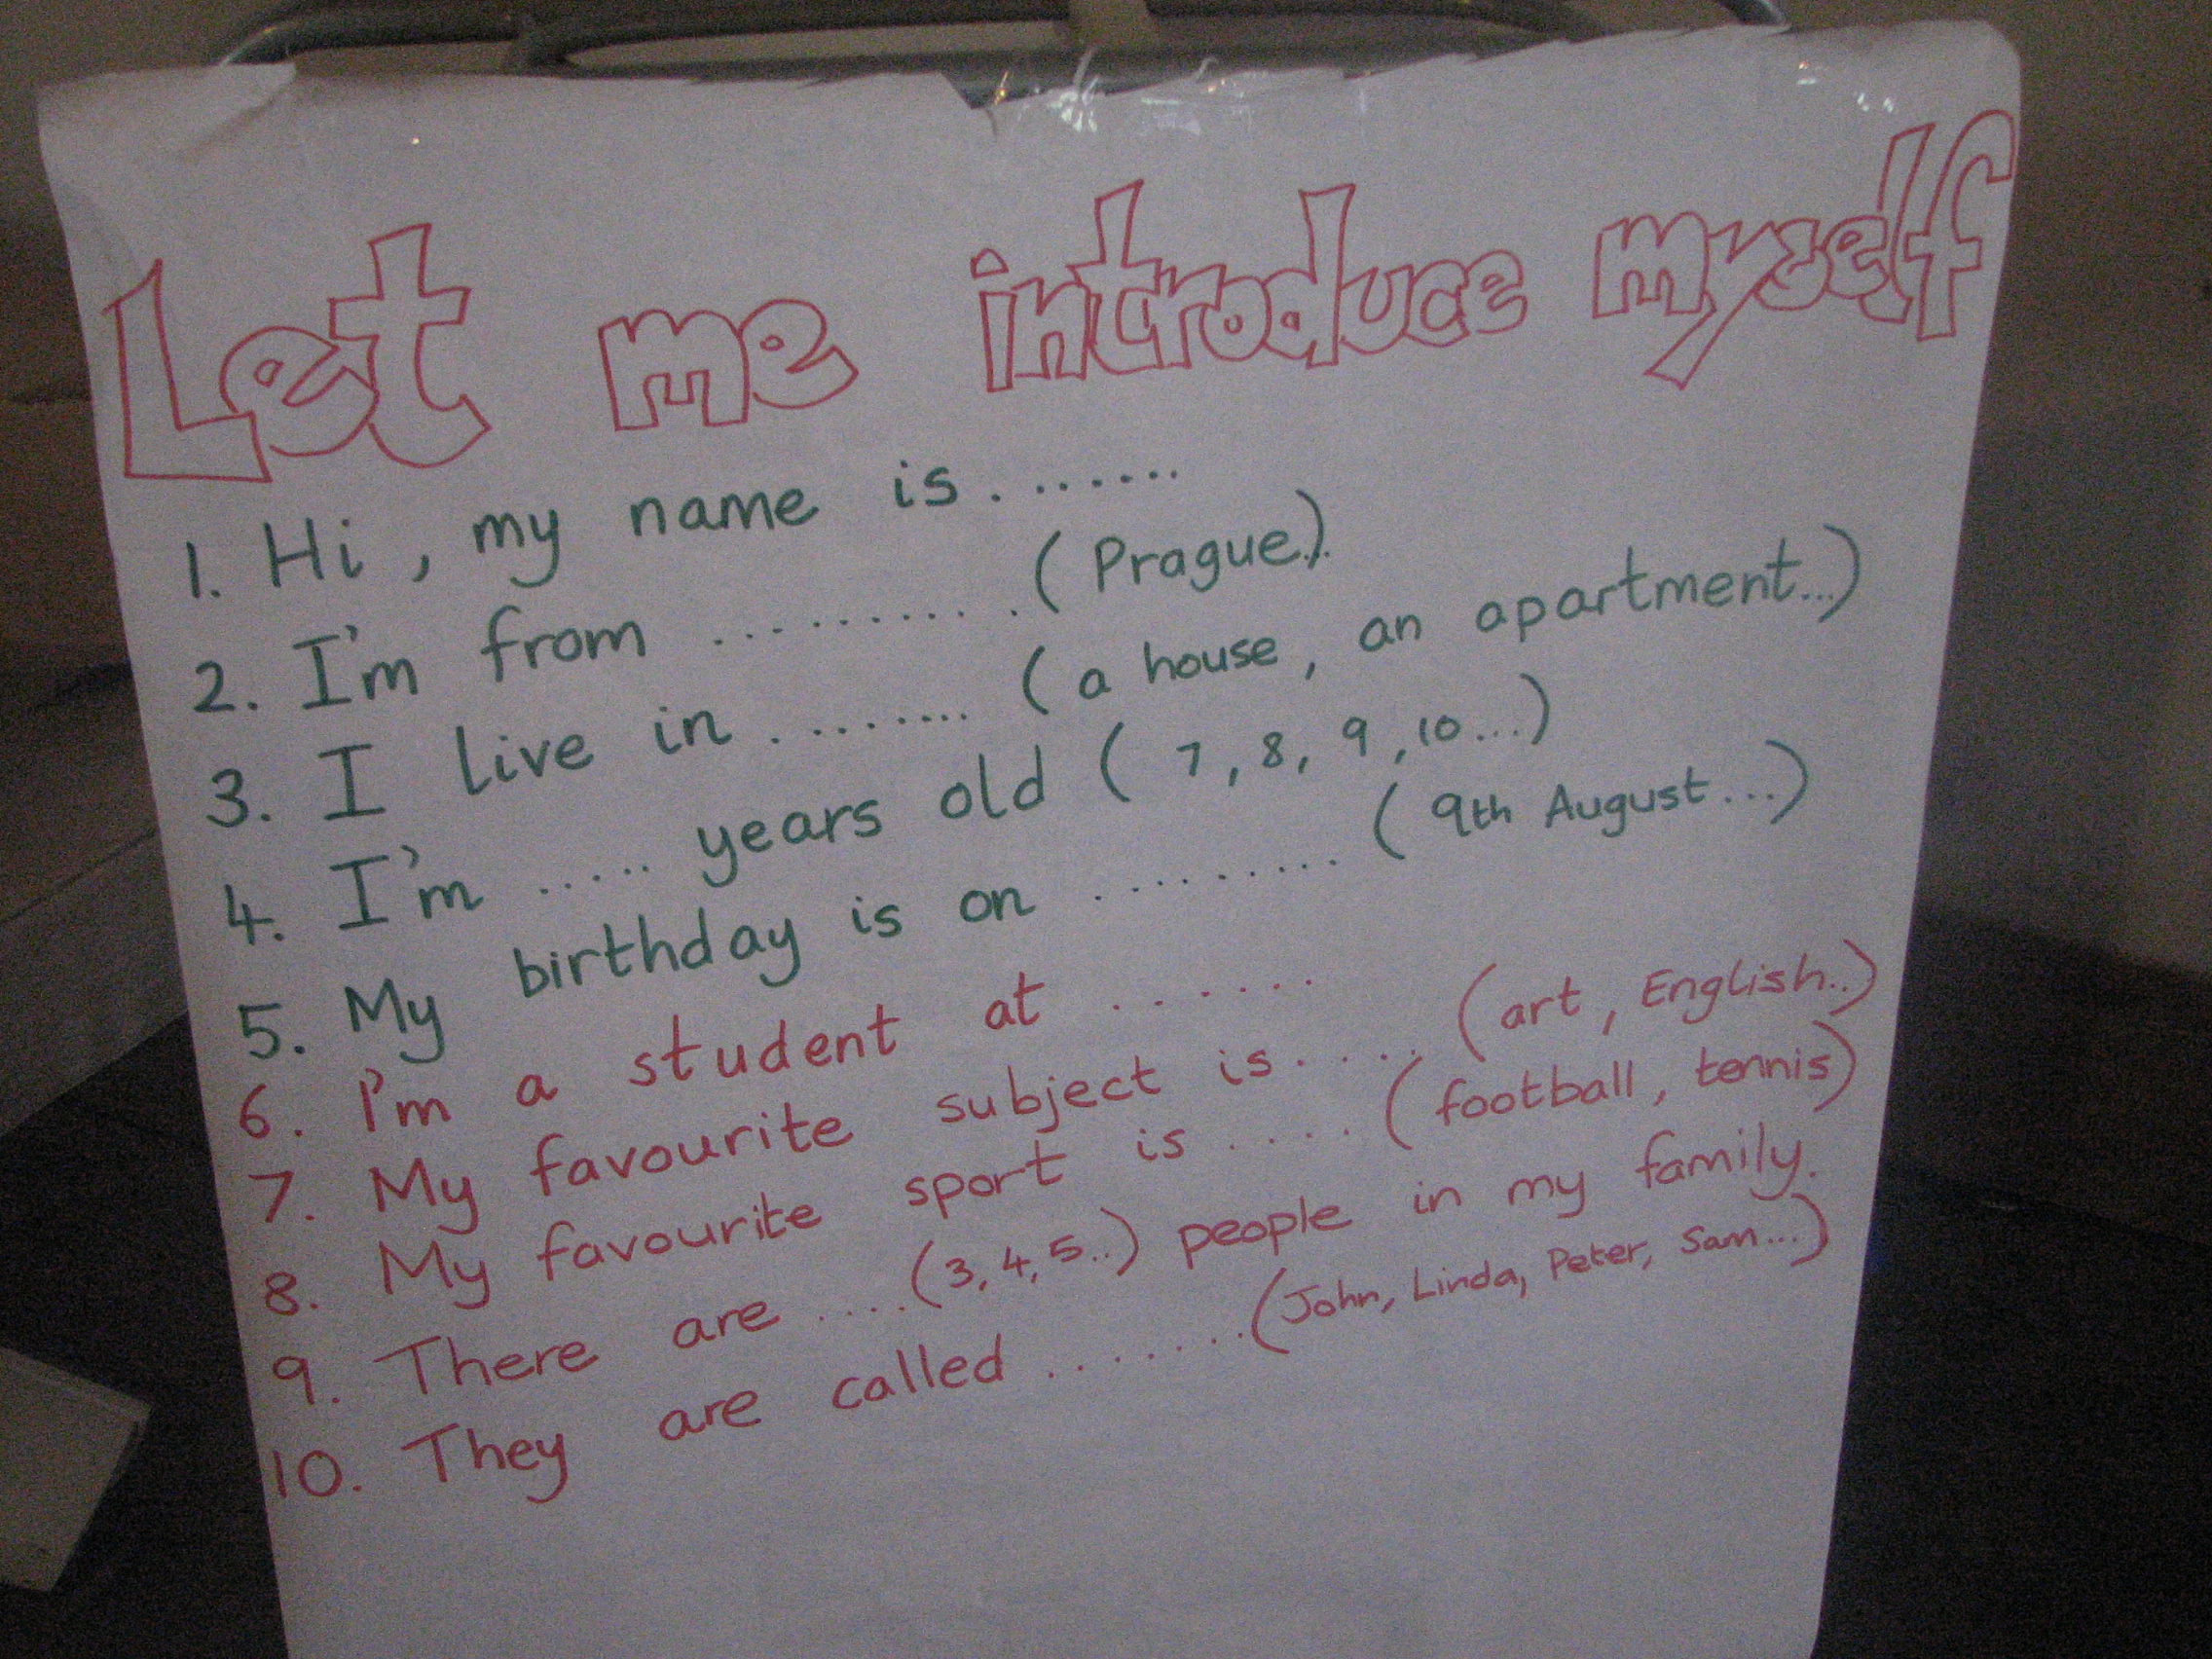 Let me introduce myself
1. Hi, my name is ........
2. I'm from .......... (Prague..)
3. I live in ........ (a house, an apartment...)
4. I'm ..... years old (7, 8, 9, 10...)
5. My birthday is on ......... (9th August...)
6. I'm a student at ......
7. My favourite subject is .... (art, English..)
8. My favourite sport is .... (football, tennis)
9. There are ....(3, 4, 5..) people in my family.
10. They are called ........(John, Linda, Peter, Sam...)